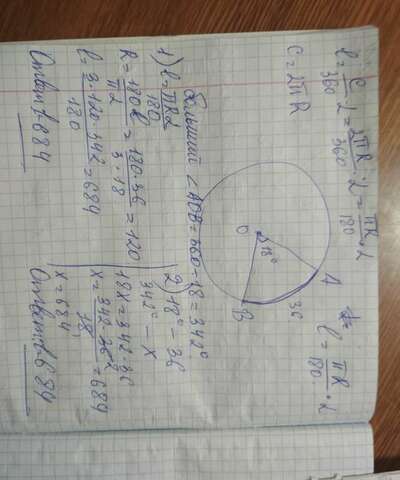 l = C/360 · α = 2πR/360° · α = πR/180 · α
l = πR/180 · α
C = 2πR
A
36
18°
O
B
больший ∠AOB = 360 - 18 = 342°
1) l = πRα/180
R = 180·l/πα = 180·36/3·18 = 120
l = 3·120·342/180 = 684
Ответ: 684
2) 18° — 36
342° — x
18x = 342·36
x = 342·36/18 = 684
x = 684
Ответ: 684